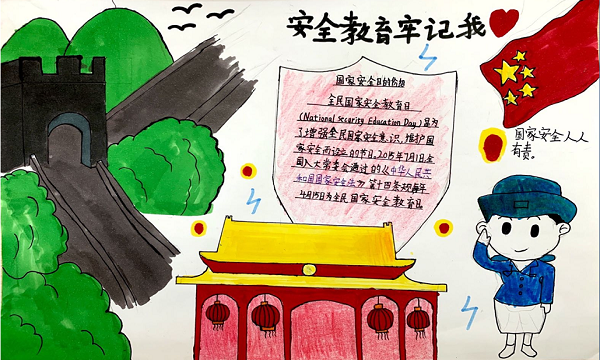 安全教育牢记我
国家安全日的介绍
全民国家安全教育日
(National Security Education Day)是为
了增强全民国家安全意识，维护国
家安全而设立的节日。2015年7月1日全
国人大常委会通过的《中华人民共
和国国家安全法》第十四条规定每年
4月15日为全民国家安全教育日
国家安全人人
有责。